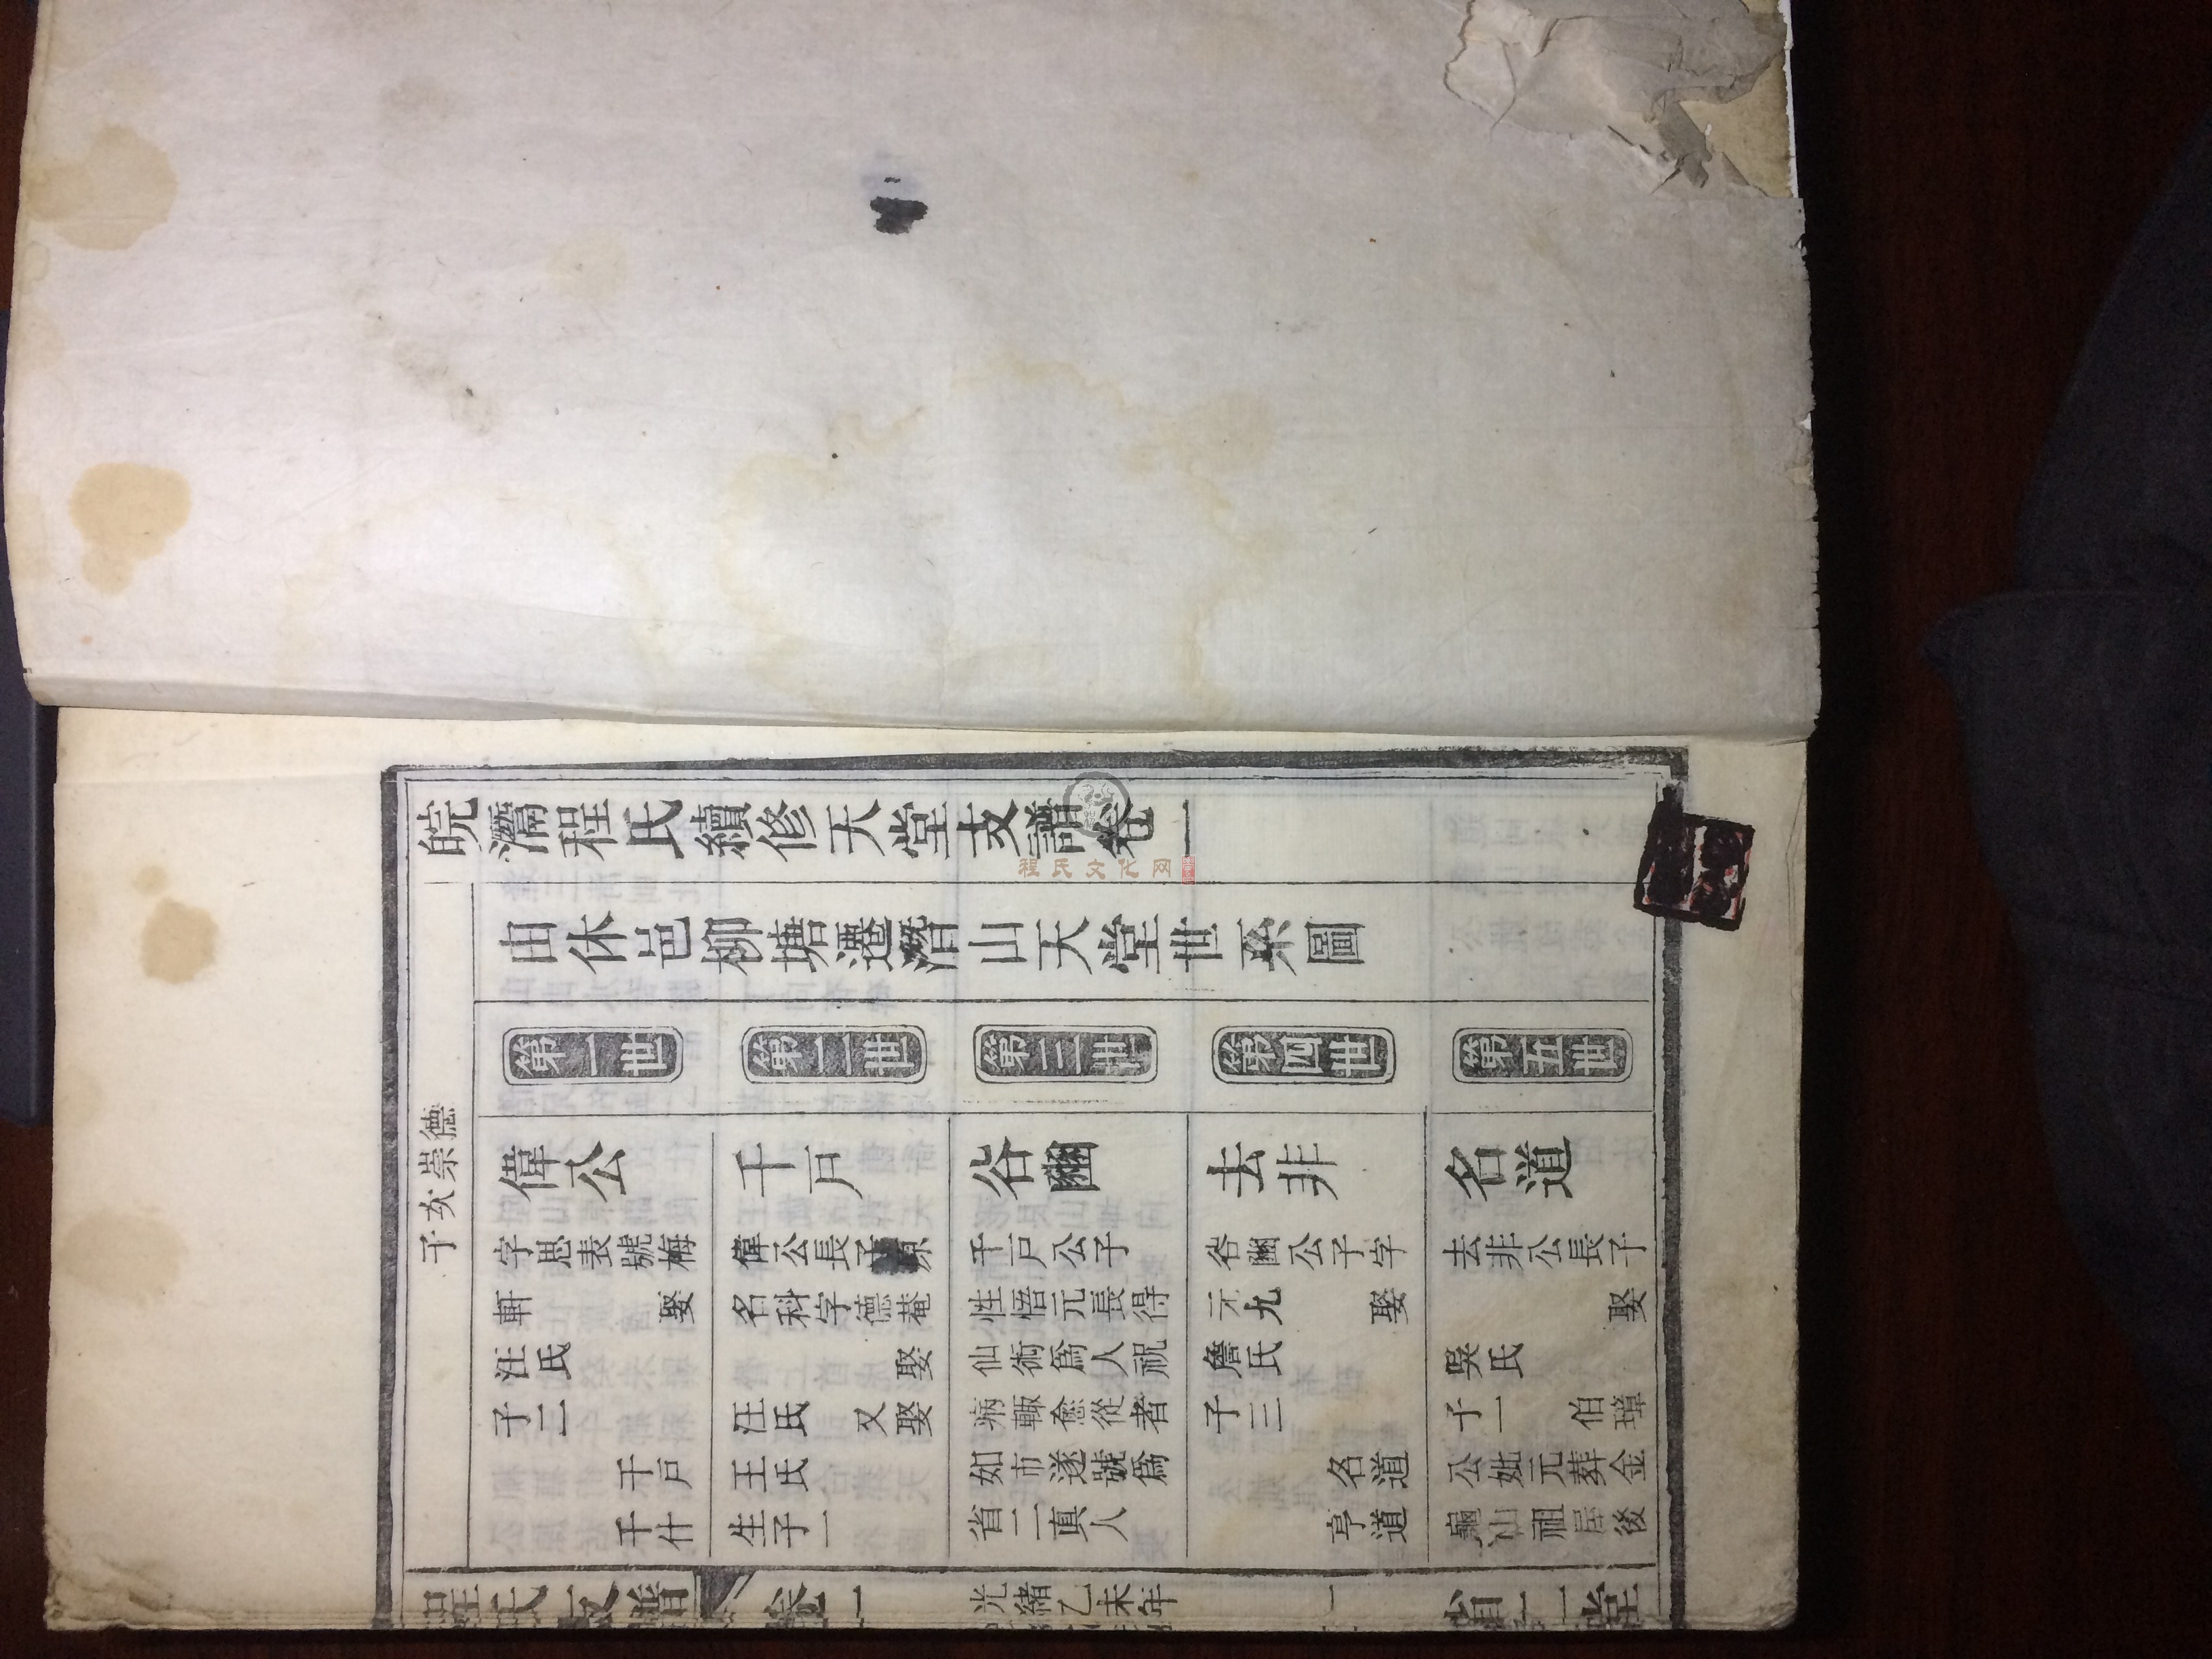 皖灊程氏續修天堂支譜卷一
程氏文化网
由休邑柳塘遷潛山天堂世系圖
第一世
第二世
第三世
第四世
第五世
子亥崇德
偉公
字思表號梅
軒 娶
汪氏
子二
千戶
千什
千戶
偉公長子
名科字德菴
娶
汪氏 又娶
王氏
生子一
谷豳
千戶公子
性悟元長得
仙術爲人祝
病輙愈從者
如市遂號爲
省二真人
去非
谷豳公子字
元九 娶
詹氏
子三
名道
亨道
名道
去非公長子
娶
吳氏
子一 伯璋
公妣元葬金
龜山祖屋後
程氏支譜
卷一
光緒乙未年
一
省二堂